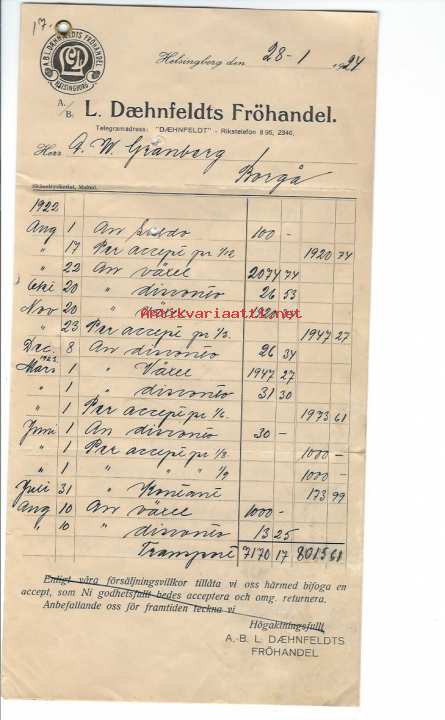 17.
A.B.L. DÆHNFELDTS FRÖHANDEL
LD
HELSINGBORG
Helsingborg den 28-1 1924
A./B. L. Dæhnfeldts Fröhandel.
Telegramadress: "DÆHNFELDT" - Rikstelefon 895, 2346.
Herr G. W. Granberg
Borgå
Skånetryckeriet, Malmö.
1922
Aug 1 An Saldo 100 -
" 17 Per accept pr 1/12 1920 74
" 22 An växel 2074 74
Okt 20 " disconto 26 53
Nov 20 " 1920
" 23 Per accept pr 1/3. 1947 27
Dec. 8 An disconto 26 34
1923
Mars 1 " Växel 1947 27
" 1 " disconto 31 30
" 1 Per accept pr 1/6. 1973 61
Juni 1 An disconto 30 -
" 1 Per accept pr 1/8. 1000 -
" 1 " " " 1/9 1000 -
Juli 31 " Kontant 173 99
Aug 10 An växel 1000 -
" 10 " disconto 13 25
Transport 7170 17 8015 61
Antikvariaatti.net
Enligt våra försäljningsvillkor tillåta vi oss härmed bifoga en
accept, som Ni godhetsfullt bedes acceptera och omg. returnera.
Anbefallande oss för framtiden teckna vi
Högaktningsfullt
A.-B. L. DÆHNFELDTS
FRÖHANDEL